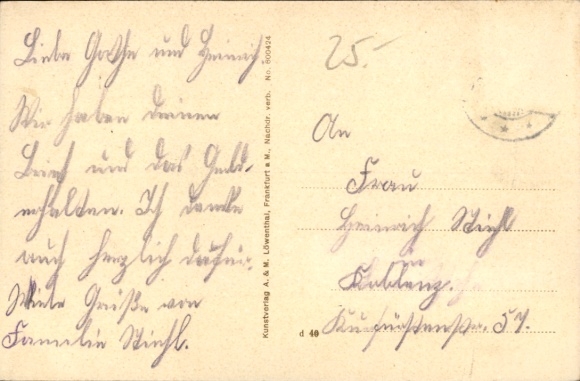 Liebe Gothe und Heinrich.
Wir haben deinen
Brief und das Geld
erhalten. Ich danke
auch herzlich dafür.
Viele Grüße von
Familie Stiehl.
Kunstverlag A. & M. Löwenthal, Frankfurt a M., Nachdr. verb. No. 600424
25.-
An
Frau
Heinrich Stiehl
Koblenz.
Kurfürstenstr. 57.
d 40